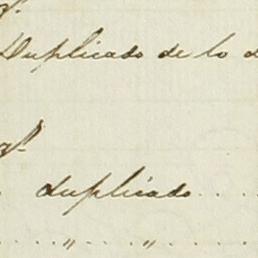 Duplicado de lo
duplicado . . .
. . . . . " . . . . " . . . . .